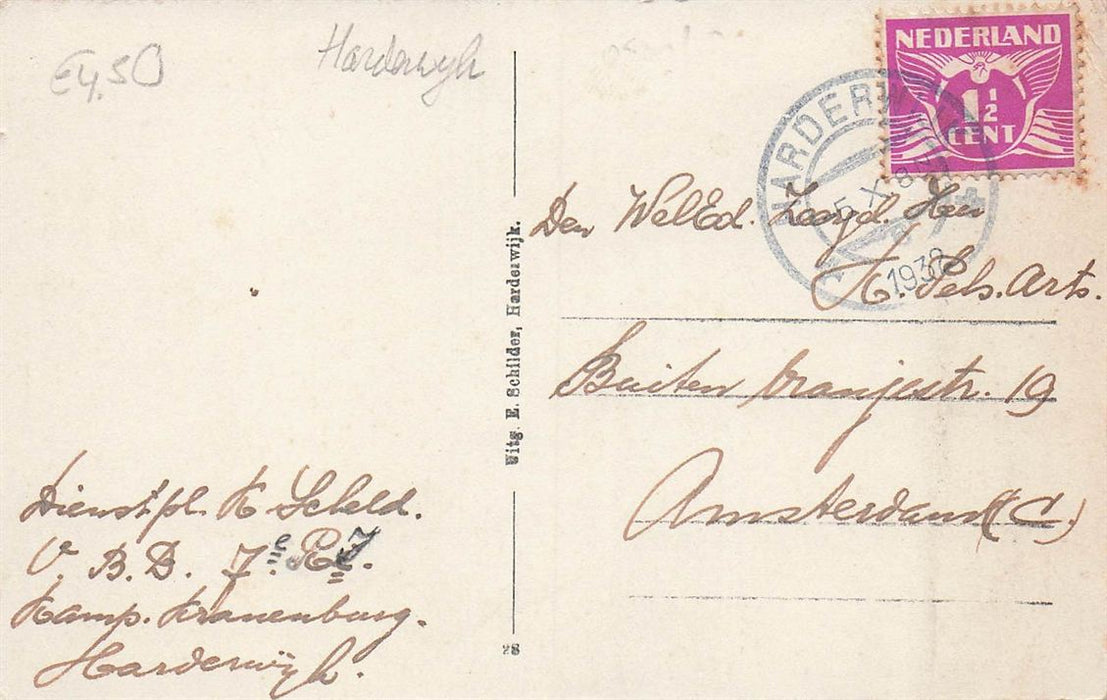 €4,50
Harderwijk
NEDERLAND
1½
CENT
HARDERWIJK
5 X
1938
Den WelEd. Zeergel. Heer
H. Pels. Arts.
Buiten Oranjestr. 19
Amsterdam (C.)
Uitg. E. Schilder, Harderwijk.
Dienstpl. K. Scheld.
V. B. B. 7e R.I.
Kamp. Kranenburg.
Harderwijk.
28